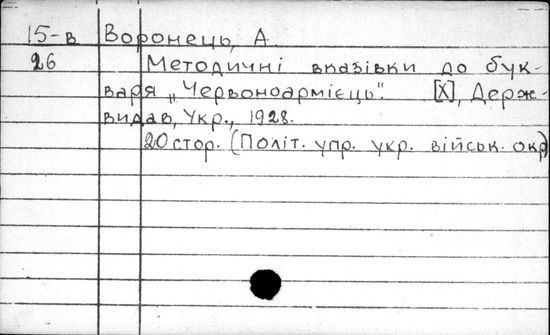 15-в Воронець, А.
26 Методичні вказівки до бук-
варя „Червоноармієць". [Х], Держ-
видав, Укр., 1928.
20 стор. (Політ. упр. укр. військ. окр)